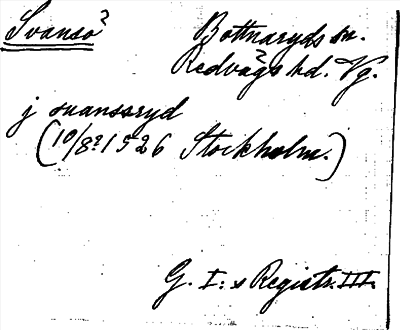 Svansö? Bottnaryds sn.
Redvägs hd. Vg.
j svanssryd
(10/8? 1526 Stockholm.)
G. I:s Registr. III.